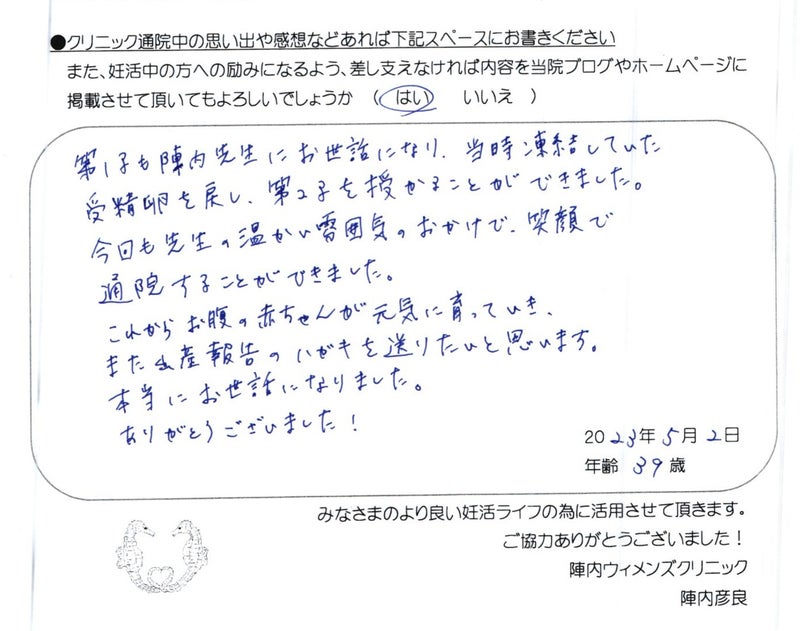 ●クリニック通院中の思い出や感想などあれば下記スペースにお書きください
また、妊活中の方への励みになるよう、差し支えなければ内容を当院ブログやホームページに
掲載させて頂いてもよろしいでしょうか （ はい いいえ ）
第1子も陣内先生にお世話になり、当時凍結していた
受精卵を戻し、第2子を授かることができました。
今回も先生の温かい雰囲気のおかげで、笑顔で
通院することができました。
これからお腹の赤ちゃんが元気に育っていき、
また出産報告のハガキを送りたいと思います。
本当にお世話になりました。
ありがとうございました！
2023年5月2日
年齢 39歳
みなさまのより良い妊活ライフの為に活用させて頂きます。
ご協力ありがとうございました！
陣内ウィメンズクリニック
陣内彦良